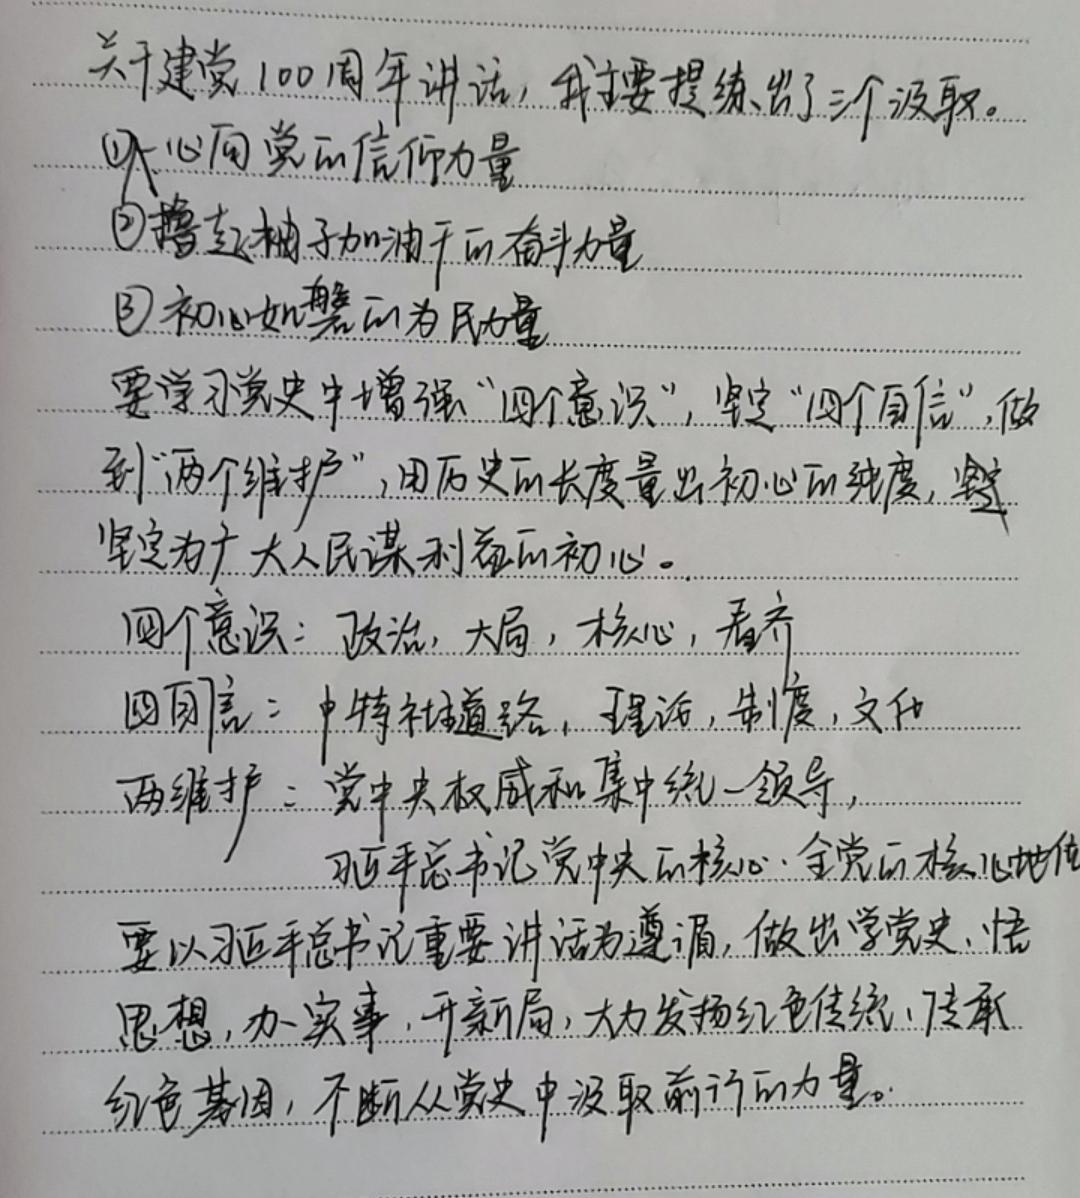 关于建党100周年讲话，我主要提练出了三个汲取。
①一心向党的信仰力量
②撸起柚子加油干的奋斗力量
③初心如磐的为民力量
要学习党史中增强“四个意识”，坚定“四个自信”，做
到“两个维护”，用历史的长度量出初心的纯度，坚定
坚定为广大人民谋利益的初心。
四个意识：政治，大局，核心，看齐
四自信：中特社道路，理论，制度，文化
两维护：党中央权威和集中统一领导，
习近平总书记党中央的核心、全党的核心地位
要以习近平总书记重要讲话为遵循，做出学党史、悟
思想，办实事，开新局，大力发扬红色传统、传承
红色基因，不断从党史中汲取前行的力量。